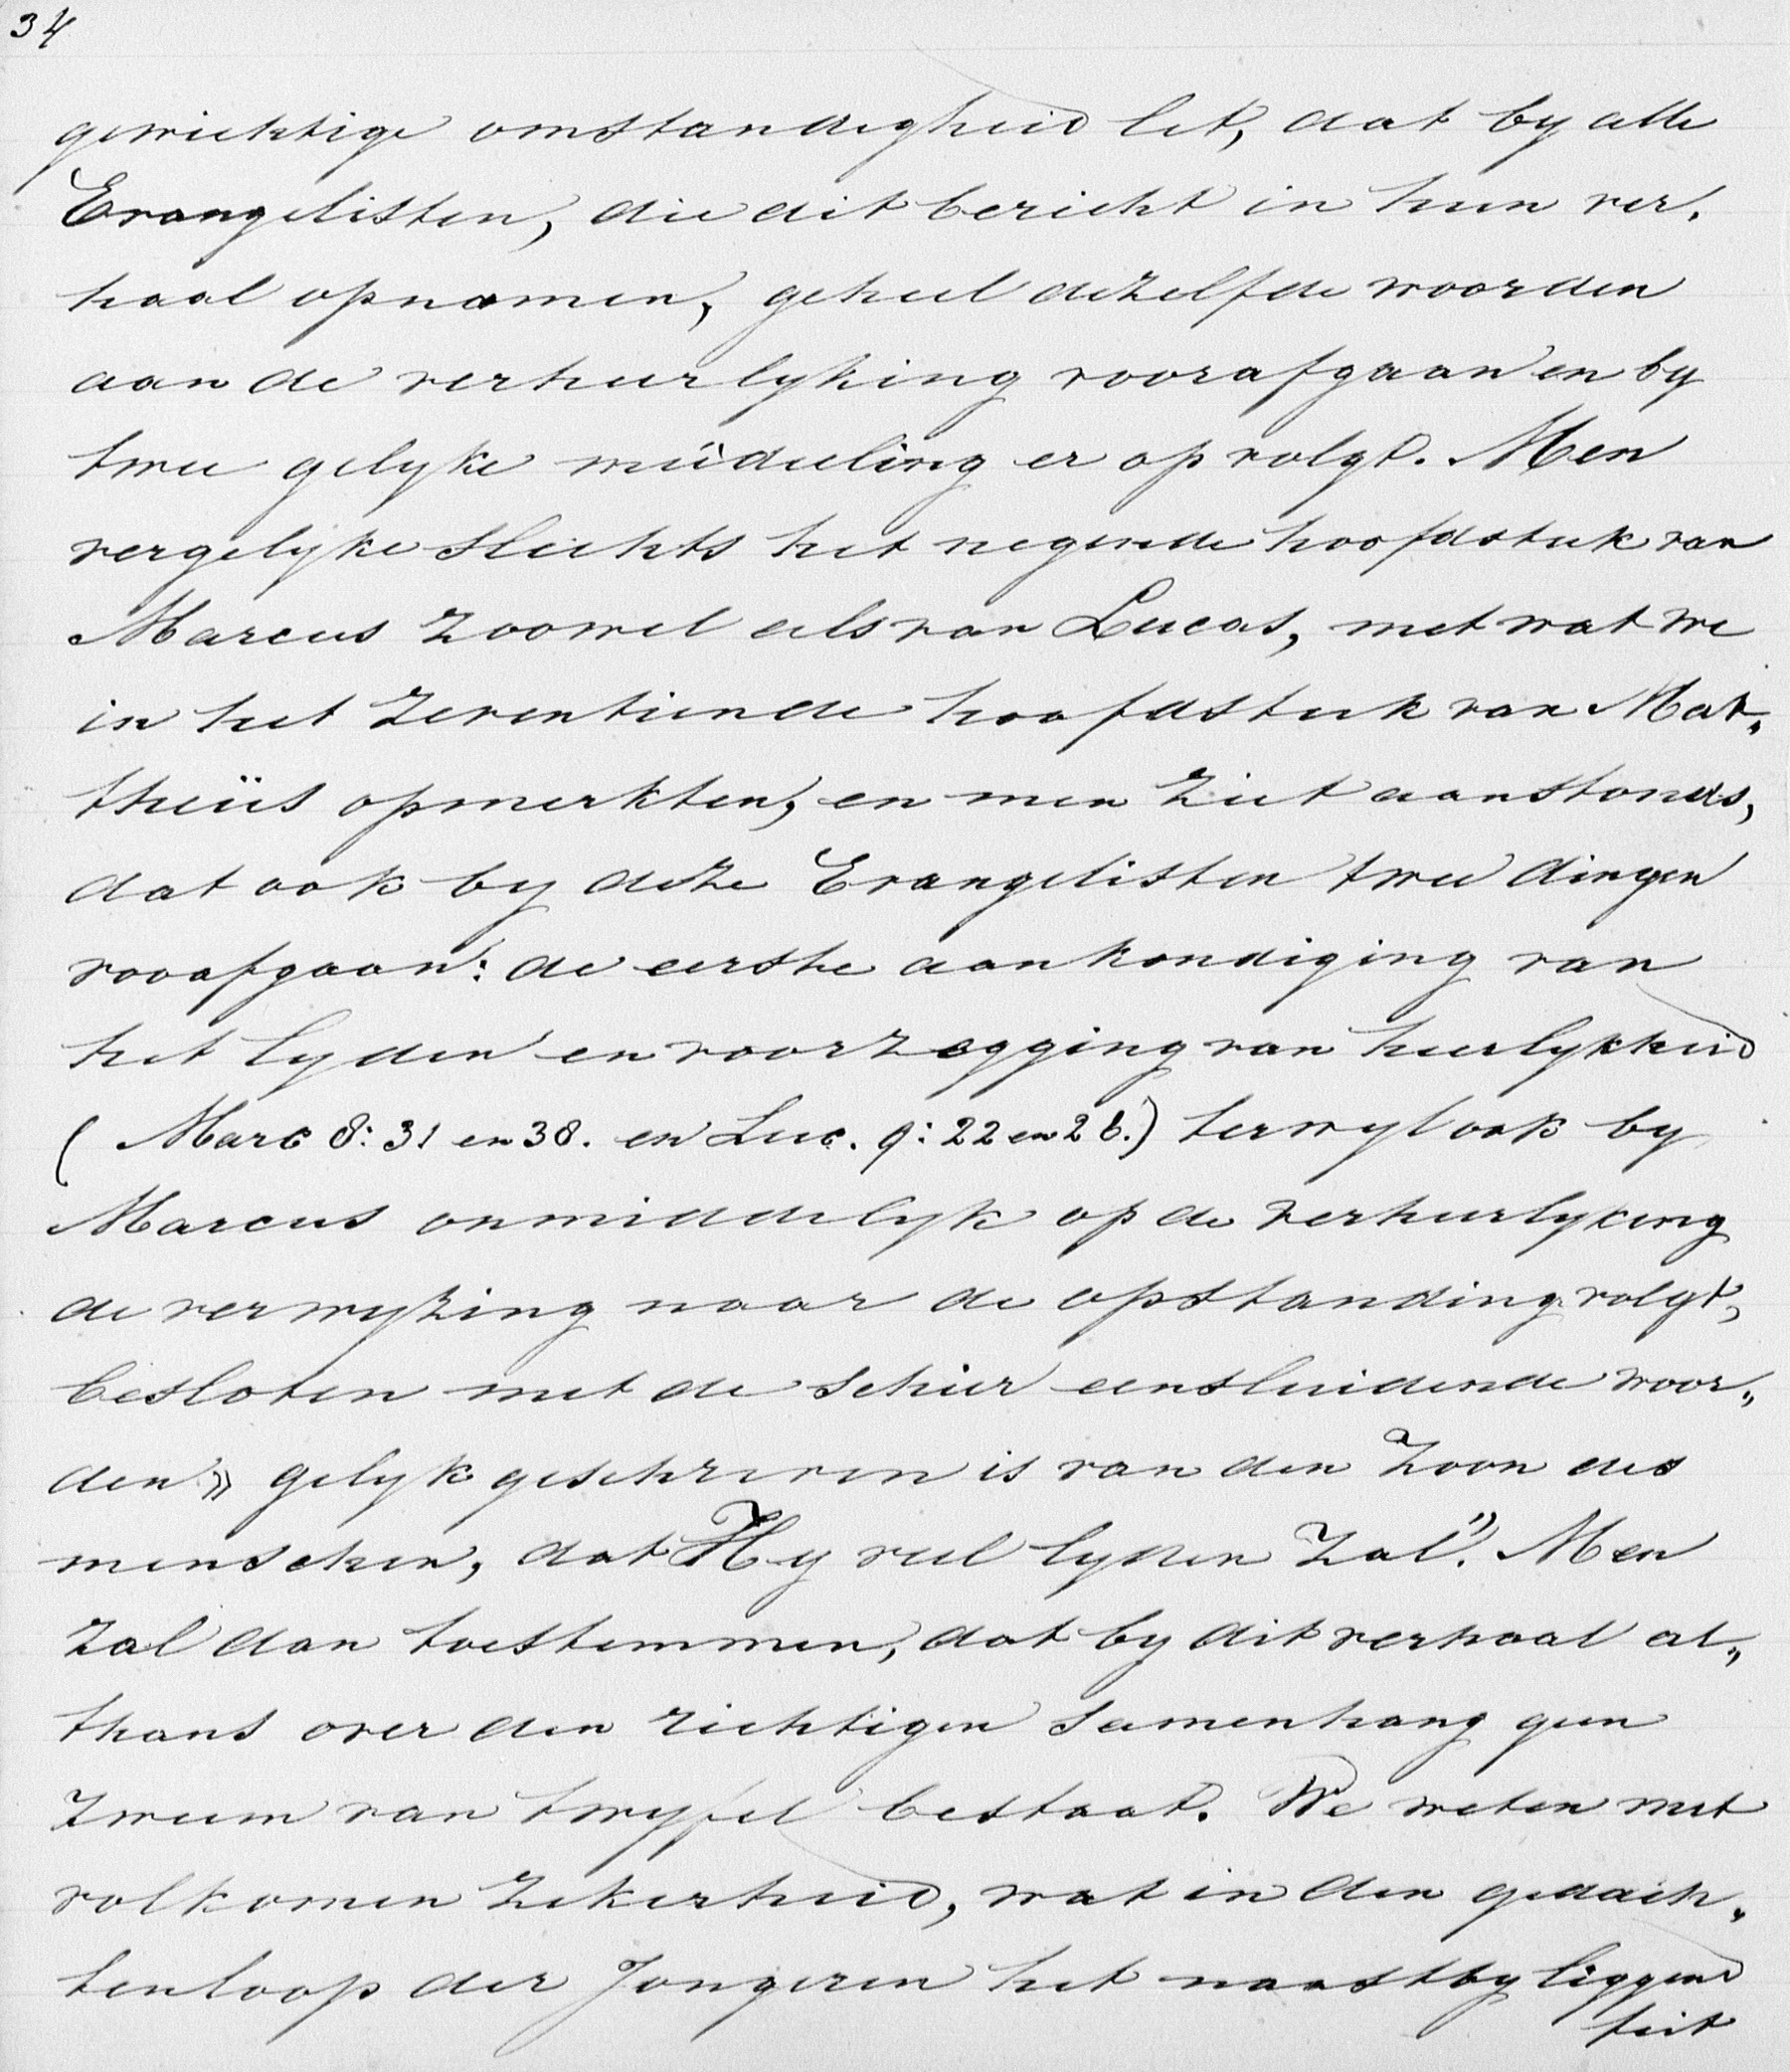 34
gewichtige omstandigheid let, dat by alle
Evangelisten, die dit bericht in hun ver„
haal opnamen, geheel dezelfde woorden
aan de verheerlyking voorafgaan en by
twee gelyke meêdeeling er op volgt. Men
vergelyke slechts het negende hoofdstuk van
Marcus zoowel als van Lucas, met wat we
in het zeventiende hoofdstuk van Mat„
theüs opmerkten, en men ziet aanstonds,
dat ook by deze Evangelisten twee dingen
vooafgaan: de eerste aankondiging van
het lyden en voorzegging van heerlykheid
(Marc 8: 31 en 38. en Luc. 9: 22 en 26.) terwyl ook by
Marcus onmiddelyk op de verheerlyking
de verwyzing naar de opstanding volgt,
besloten met de schier eensluidende woor„
den » gelyk geschreven is van den Zoon des
menschen, dat Hy veel lyden zal". Men
zal dan toestemmen, dat by dit verhaal al„
thans over den richtigen samenhang geen
zweem van twyfel bestaat. We weten met
volkomen zekerheid, wat in den gedach„
tenloop der Jongeren het naastby liggend
feit